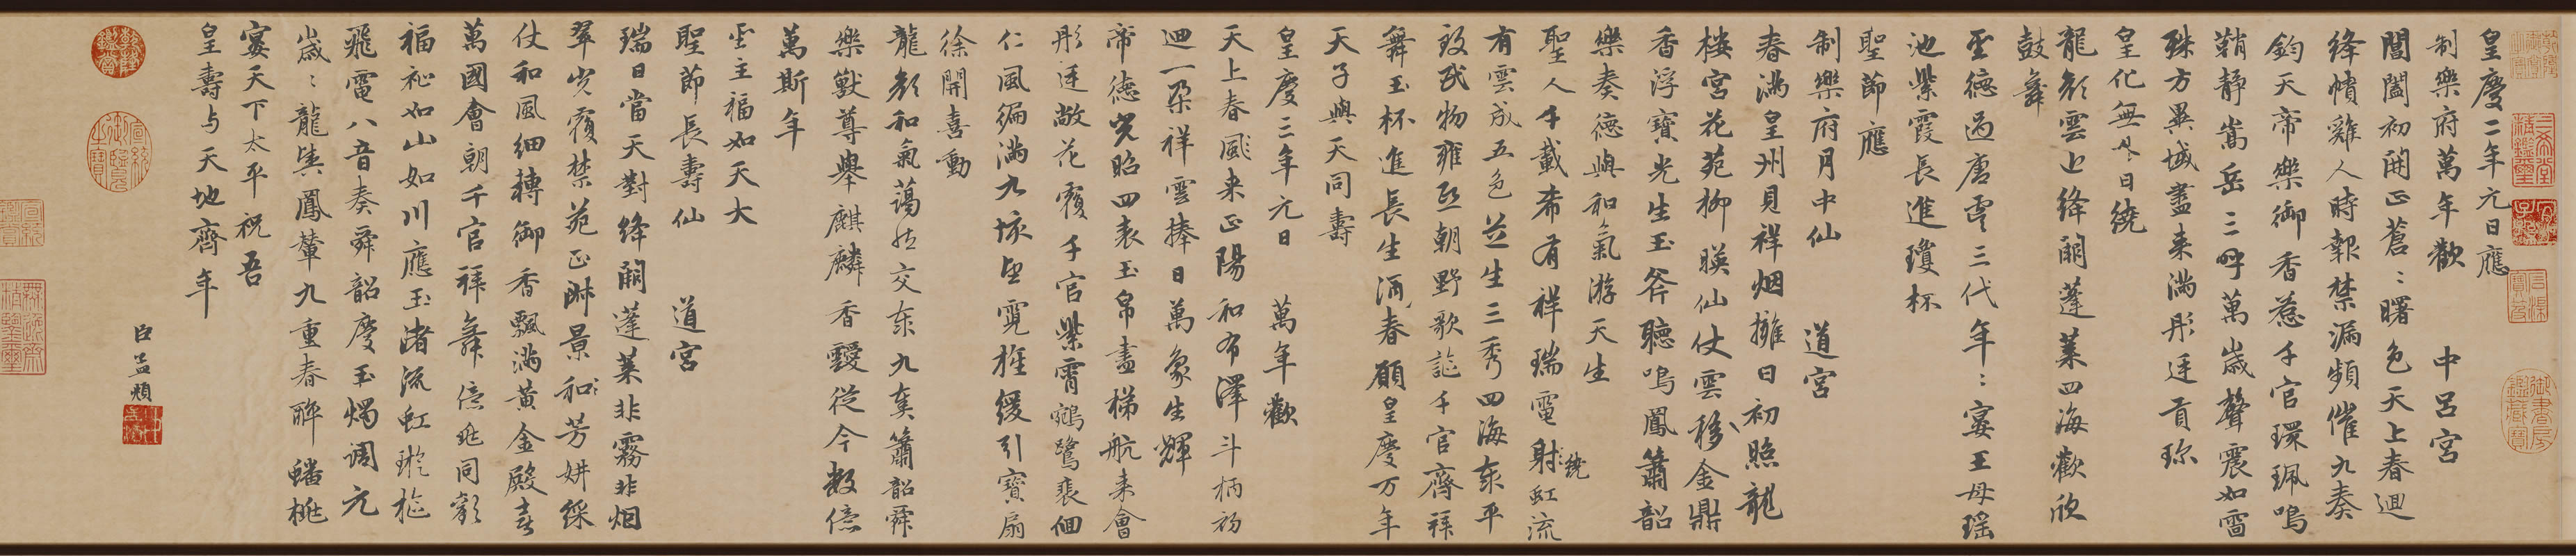 皇慶二年元日應
制樂府萬年歡　中呂宮
閶闔初開正蒼〻曙色天上春迴
絳幘雞人時報禁漏頻催九奏
鈞天帝樂御香惹千官環珮鳴
鞘靜嵩岳三呼萬歲聲震如雷
殊方異域盡来滿彤廷貢珎
皇化無外日繞
龍顏雲近絳闕蓬萊四海歡欣
鼓舞
聖德過唐虞三代年〻宴王母瑤
池紫霞長進瓊杯
聖節應
制樂府月中仙　道宮
春滿皇州見祥烟擁日初照龍
樓宮花苑柳暎仙仗雲移金鼎
香浮寶光生玉斧聽鳴鳳簫韶
樂奏德與和氣游天生
聖人千載希有祥瑞電繞射虹流
有雲成五色芝生三秀四海㤗平
致民物雍熙朝野歌謳千官齊拜
舞玉杯進長生酒春願皇慶万年
天子與天同壽
皇慶三年元日　萬年歡
天上春風来正陽和布澤斗柄初
迴一朶祥雲捧日萬象生輝
帝德光昭四表玉帛盡梯航来會
彤廷敞花覆千官紫霄鵷鷺裵佪
仁風徧滿九垓望霓旌緩引寶扇
徐開喜動
龍顏和氣藹然交㤗九奏簫韶舜
樂獸尊舉麒麟香靉從今數億
萬斯年
聖主福如天大
聖節長壽仙　道宮
瑞日當天對絳闕蓬萊非霧非烟
翠光覆禁苑正淑景和芳妍綵
仗和風細轉御香飄滿黃金殿喜
萬國會朝千官拜舞億兆同歡
福祉如山如川應玉渚流虹璇樞
飛電八音奏舜韶慶玉燭調元
歲〻龍輿鳳輦九重春醉蟠桃
宴天下太平祝吾
皇壽与天地齊年
臣孟頫